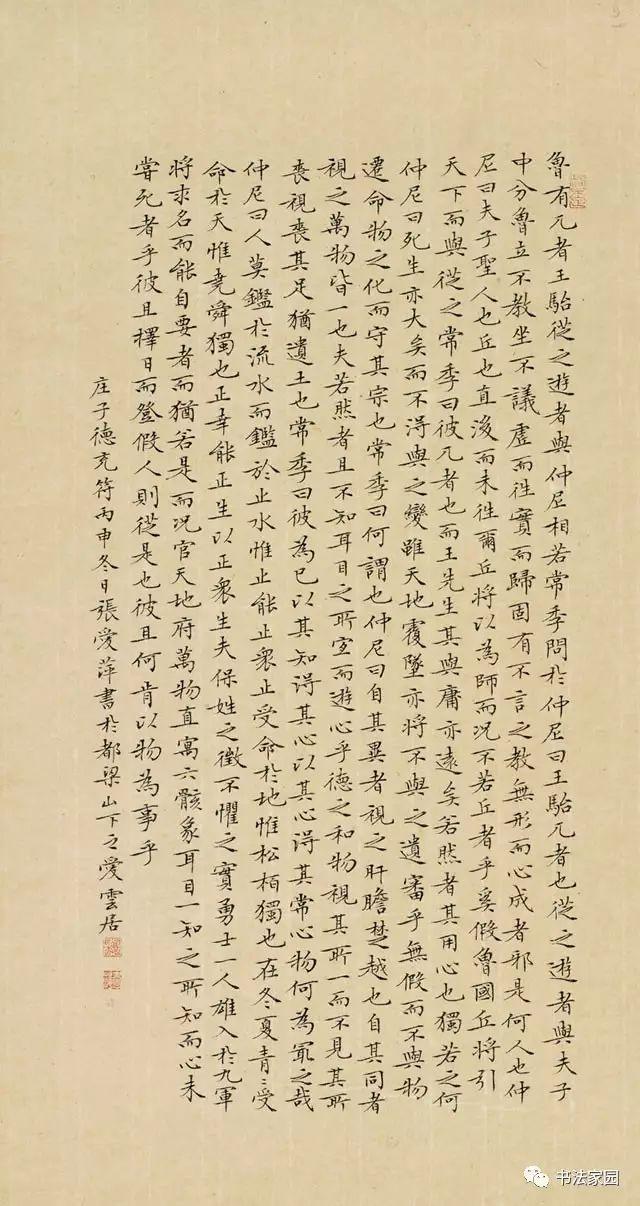 魯有兀者王駘從之遊者與仲尼相若常季問於仲尼曰王駘兀者也從之遊者與夫子
中分魯立不教坐不議虛而往實而歸固有不言之教無形而心成者邪是何人也仲
尼曰夫子聖人也丘也直後而未往爾丘將以為師而況不若丘者乎奚假魯國丘將引
天下而與從之常季曰彼兀者也而王先生其與庸亦遠矣若然者其用心也獨若之何
仲尼曰死生亦大矣而不得與之變雖天地覆墜亦將不與之遺審乎無假而不與物
遷命物之化而守其宗也常季曰何謂也仲尼曰自其異者視之肝膽楚越也自其同者
視之萬物皆一也夫若然者且不知耳目之所宜而遊心乎德之和物視其所一而不見其所
喪視喪其足猶遺土也常季曰彼為已以其知得其心以其心得其常心物何為冣之哉
仲尼曰人莫鑑於流水而鑑於止水惟止能止衆止受命於地惟松柏獨也在冬夏青〻受
命於天惟堯舜獨也正幸能正生以正衆生夫保姓之徵不懼之實勇士一人雄入於九軍
將求名而能自要者而猶若是而況官天地府萬物直寓六骸象耳目一知之所知而心未
嘗死者乎彼且擇日而登假人則從是也彼且何肯以物為事乎
庄子德充符丙申冬日張愛萍書於都梁山下之愛雲居
书法家园